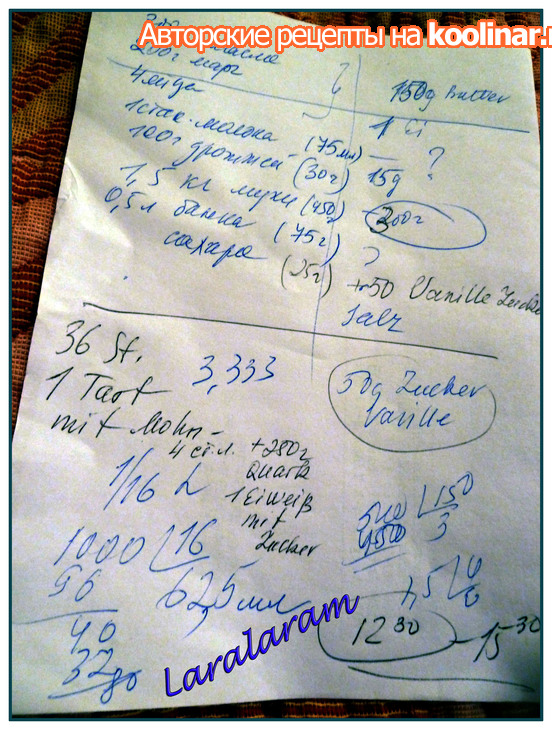 Авторские рецепты на koolinar.r
масла
200г марг
4 яйца
1 стак. молока (75мл)
100г дрожжей (30г)
1,5 кг муки (450г)
0,5л банка (75г)
сахара (25г)
150g Butter
1 Ei
?
15g
?
300г
?
+50 Vanille Zucke
Salz
36 St.
1 Tart
mit Mohn-
3,333
50g Zucker
Vanille
4 ст.л. +280г
Quark
1 Eiweiß
mit
Zucker
1/16 L
1000 16
96 62,5 мл
40
32
80
500 150
450 3
1,5
12 30 - 15 30
Laralaram